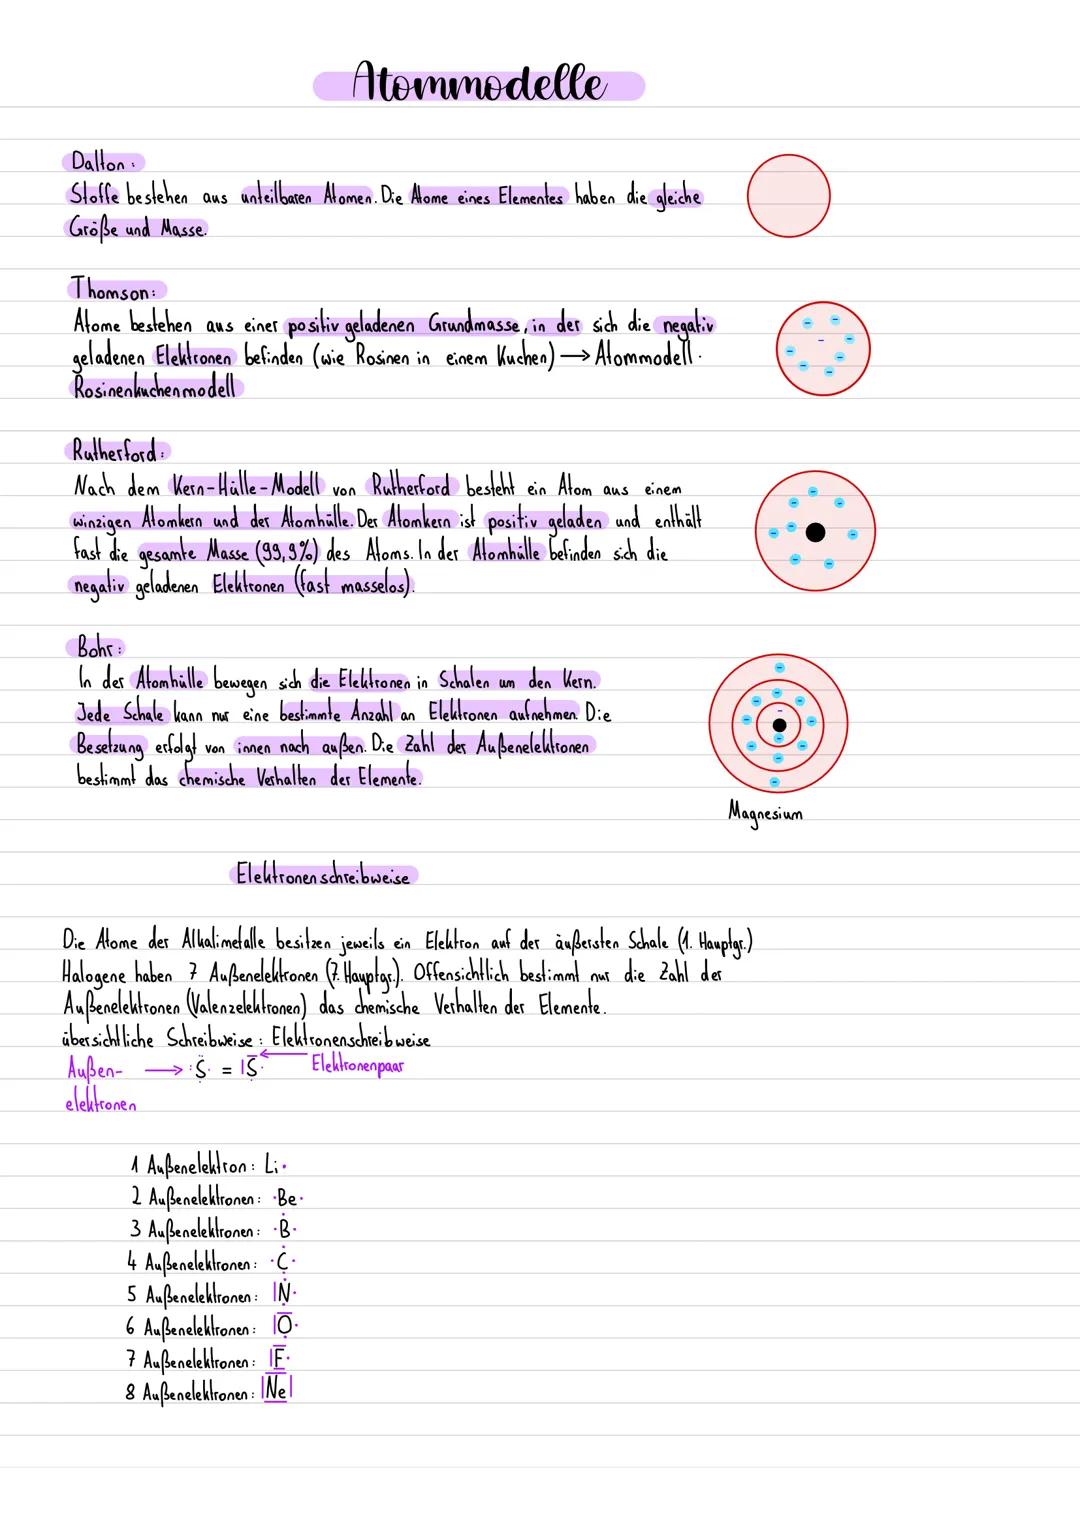 Atommodelle
Dalton:
Stoffe bestehen aus unteilbaren Atomen. Die Atome eines Elementes haben die gleiche
Größe und Masse.
Thomson:
Atome bestehen aus einer positiv geladenen Grundmasse, in der sich die negativ
geladenen Elektronen befinden (wie Rosinen in einem Kuchen) → Atommodell:
Rosinenkuchenmodell
Rutherford:
Nach dem Kern-Hülle-Modell von Rutherford besteht ein Atom aus einem
winzigen Atomkern und der Atomhülle. Der Atomkern ist positiv geladen und enthält
fast die gesamte Masse (99,9%) des Atoms. In der Atomhülle befinden sich die
negativ geladenen Elektronen (fast masselos).
Bohr:
In der Atomhülle bewegen sich die Elektronen in Schalen um den Kern.
Jede Schale kann nur eine bestimmte Anzahl an Elektronen aufnehmen. Die
Besetzung erfolgt von innen nach außen. Die Zahl der Außenelektronen
bestimmt das chemische Verhalten der Elemente.
Magnesium
Elektronenschreibweise
Die Atome der Alkalimetalle besitzen jeweils ein Elektron auf der äußersten Schale (1. Hauptgr.)
Halogene haben 7 Außenelektronen (7. Hauptgr.). Offensichtlich bestimmt nur die Zahl der
Außenelektronen (Valenzelektronen) das chemische Verhalten der Elemente.
übersichtliche Schreibweise: Elektronenschreibweise
Außen- → :S· = |S· ← Elektronenpaar
elektronen
1 Außenelektron: Li·
2 Außenelektronen: ·Be·
3 Außenelektronen: ·B·
4 Außenelektronen: ·C·
5 Außenelektronen: |N·
6 Außenelektronen: |O·
7 Außenelektronen: |F·
8 Außenelektronen: |Ne|